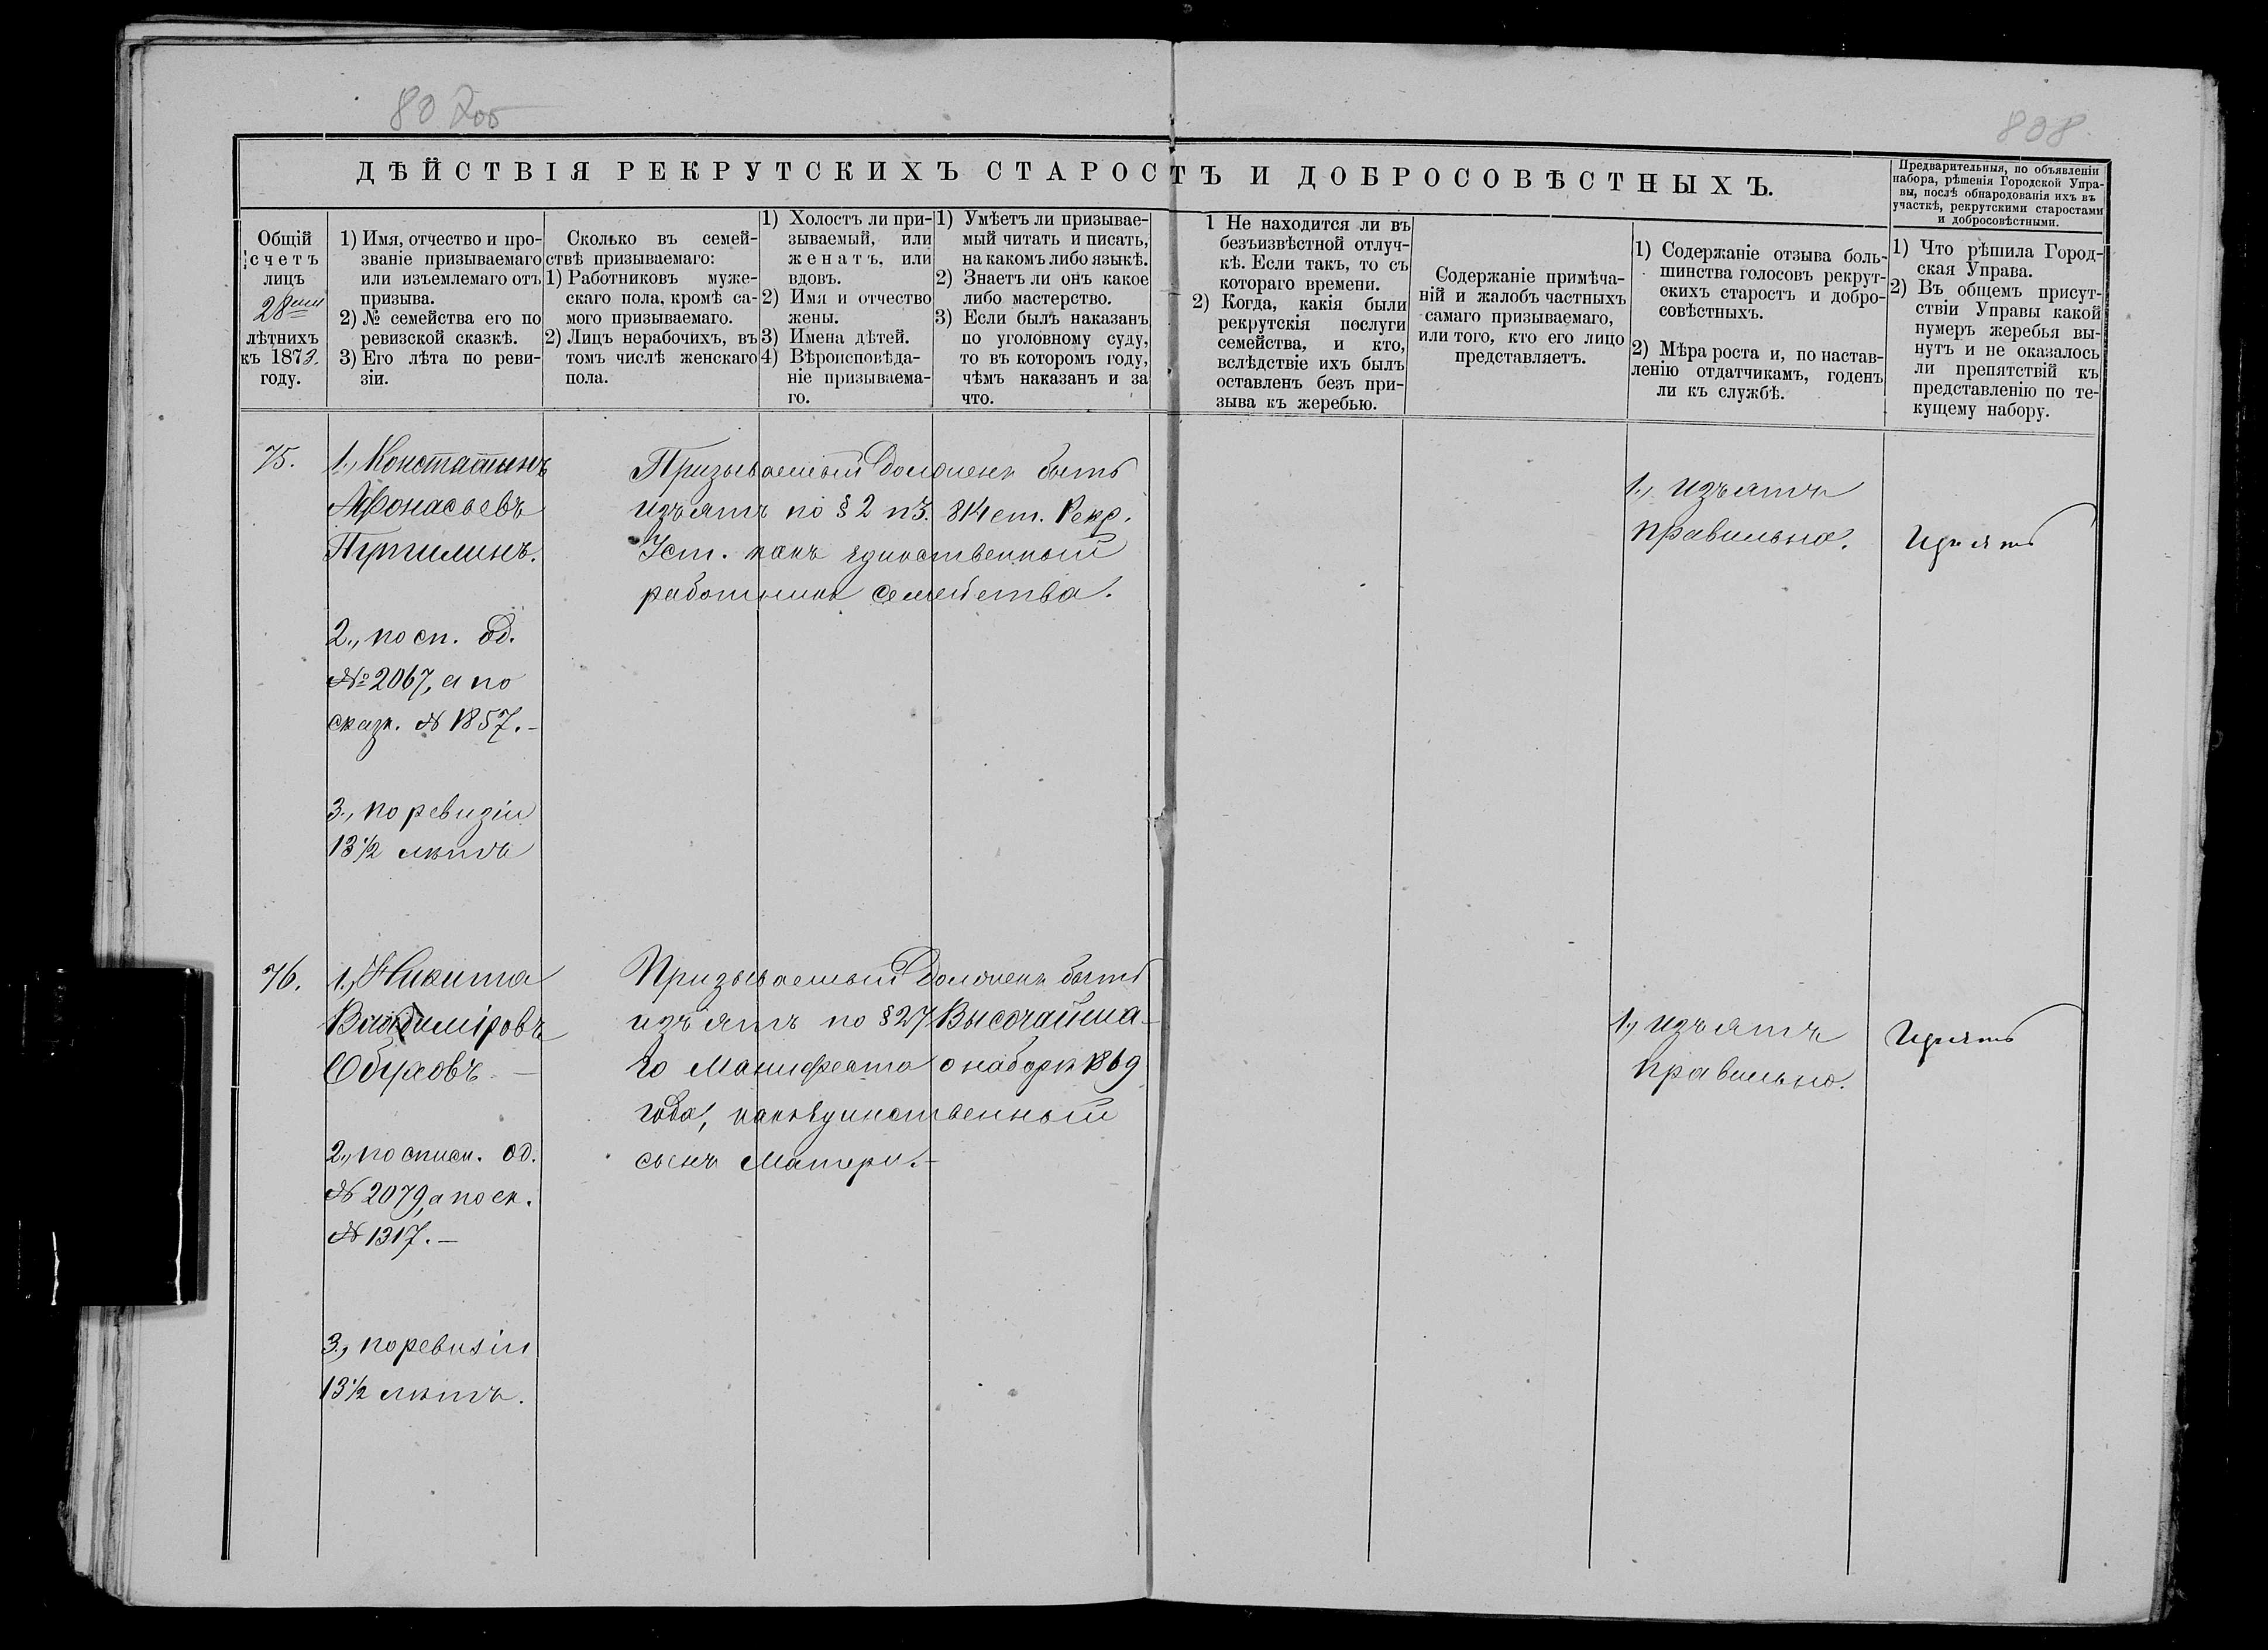 80 Zоб
808
ДѢЙСТВІЯ РЕКРУТСКИХЪ СТАРОСТЪ И ДОБРОСОВѢСТНЫХЪ.
Предварительныя, по объявленіи
набора, рѣшенія Городской Упра-
вы, послѣ обнародованія ихъ въ
участкѣ, рекрутскими старостами
и добросовѣстными.
Общій
счетъ
лицъ
28ми
лѣтнихъ
къ 1873.
году.
1) Имя, отчество и про-
званіе призываемаго
или изъемлемаго отъ
призыва.
2) № семейства его по
ревизской сказкѣ.
3) Его лѣта по реви-
зіи.
Сколько въ семей-
ствѣ призываемаго:
1) Работниковъ муже-
скаго пола, кромѣ са-
мого призываемаго.
2) Лицъ нерабочихъ, въ
томъ числѣ женскаго
пола.
1) Холостъ ли при-
зываемый, или
женатъ, или
вдовъ.
2) Имя и отчество
жены.
3) Имена дѣтей.
4) Вѣроисповѣда-
ніе призываема-
го.
1) Умѣетъ ли призывае-
мый читать и писать,
на какомъ либо языкѣ.
2) Знаетъ ли онъ какое
либо мастерство.
3) Если былъ наказанъ
по уголовному суду,
то въ которомъ году,
чѣмъ наказанъ и за
что.
1 Не находится ли въ
безъизвѣстной отлуч-
кѣ. Если такъ, то съ
котораго времени.
2) Когда, какія были
рекрутскія послуги
семейства, и кто,
вслѣдствіе ихъ былъ
оставленъ безъ при-
зыва къ жеребью.
Содержаніе примѣча-
ній и жалобъ частныхъ
самаго призываемаго,
или того, кто его лицо
представляетъ.
1) Содержаніе отзыва боль-
шинства голосовъ рекрут-
скихъ старостъ и добро-
совѣстныхъ.
2) Мѣра роста и, по настав-
ленію отдатчикамъ, годенъ
ли къ службѣ.
1) Что рѣшила Город-
ская Управа.
2) Въ общемъ присут-
ствіи Управы какой
нумеръ жеребья вы-
нутъ и не оказалось
ли препятствій къ
представленію по те-
кущему набору.
75.
1., Констатинъ
Афонасьевъ
Пупилинъ.
2., по сп. Од.
№ 2067, а по
сказк. № 1857.-
3., по ревизіи
13 1/2 лѣтъ
Призываемый долженъ быть
изъятъ по § 2 п 3. 814 ст. Рекр.
Уст. какъ единственный
работникъ семейства.
1., изъятъ
правильно.
Изъять
76.
1., Никита
Владиміровъ
Обуховъ. —
2., по списк. Од.
№ 2079, а по ск.
№ 1317. —
3., по ревизіи
13 1/2 лѣтъ.
Призываемый долженъ быть
изъятъ по § 27 Высочайша-
го Манифеста о наборѣ 1869
года, какъ единственный
сынъ матери. –
1., изъятъ
правильно.
Изъять